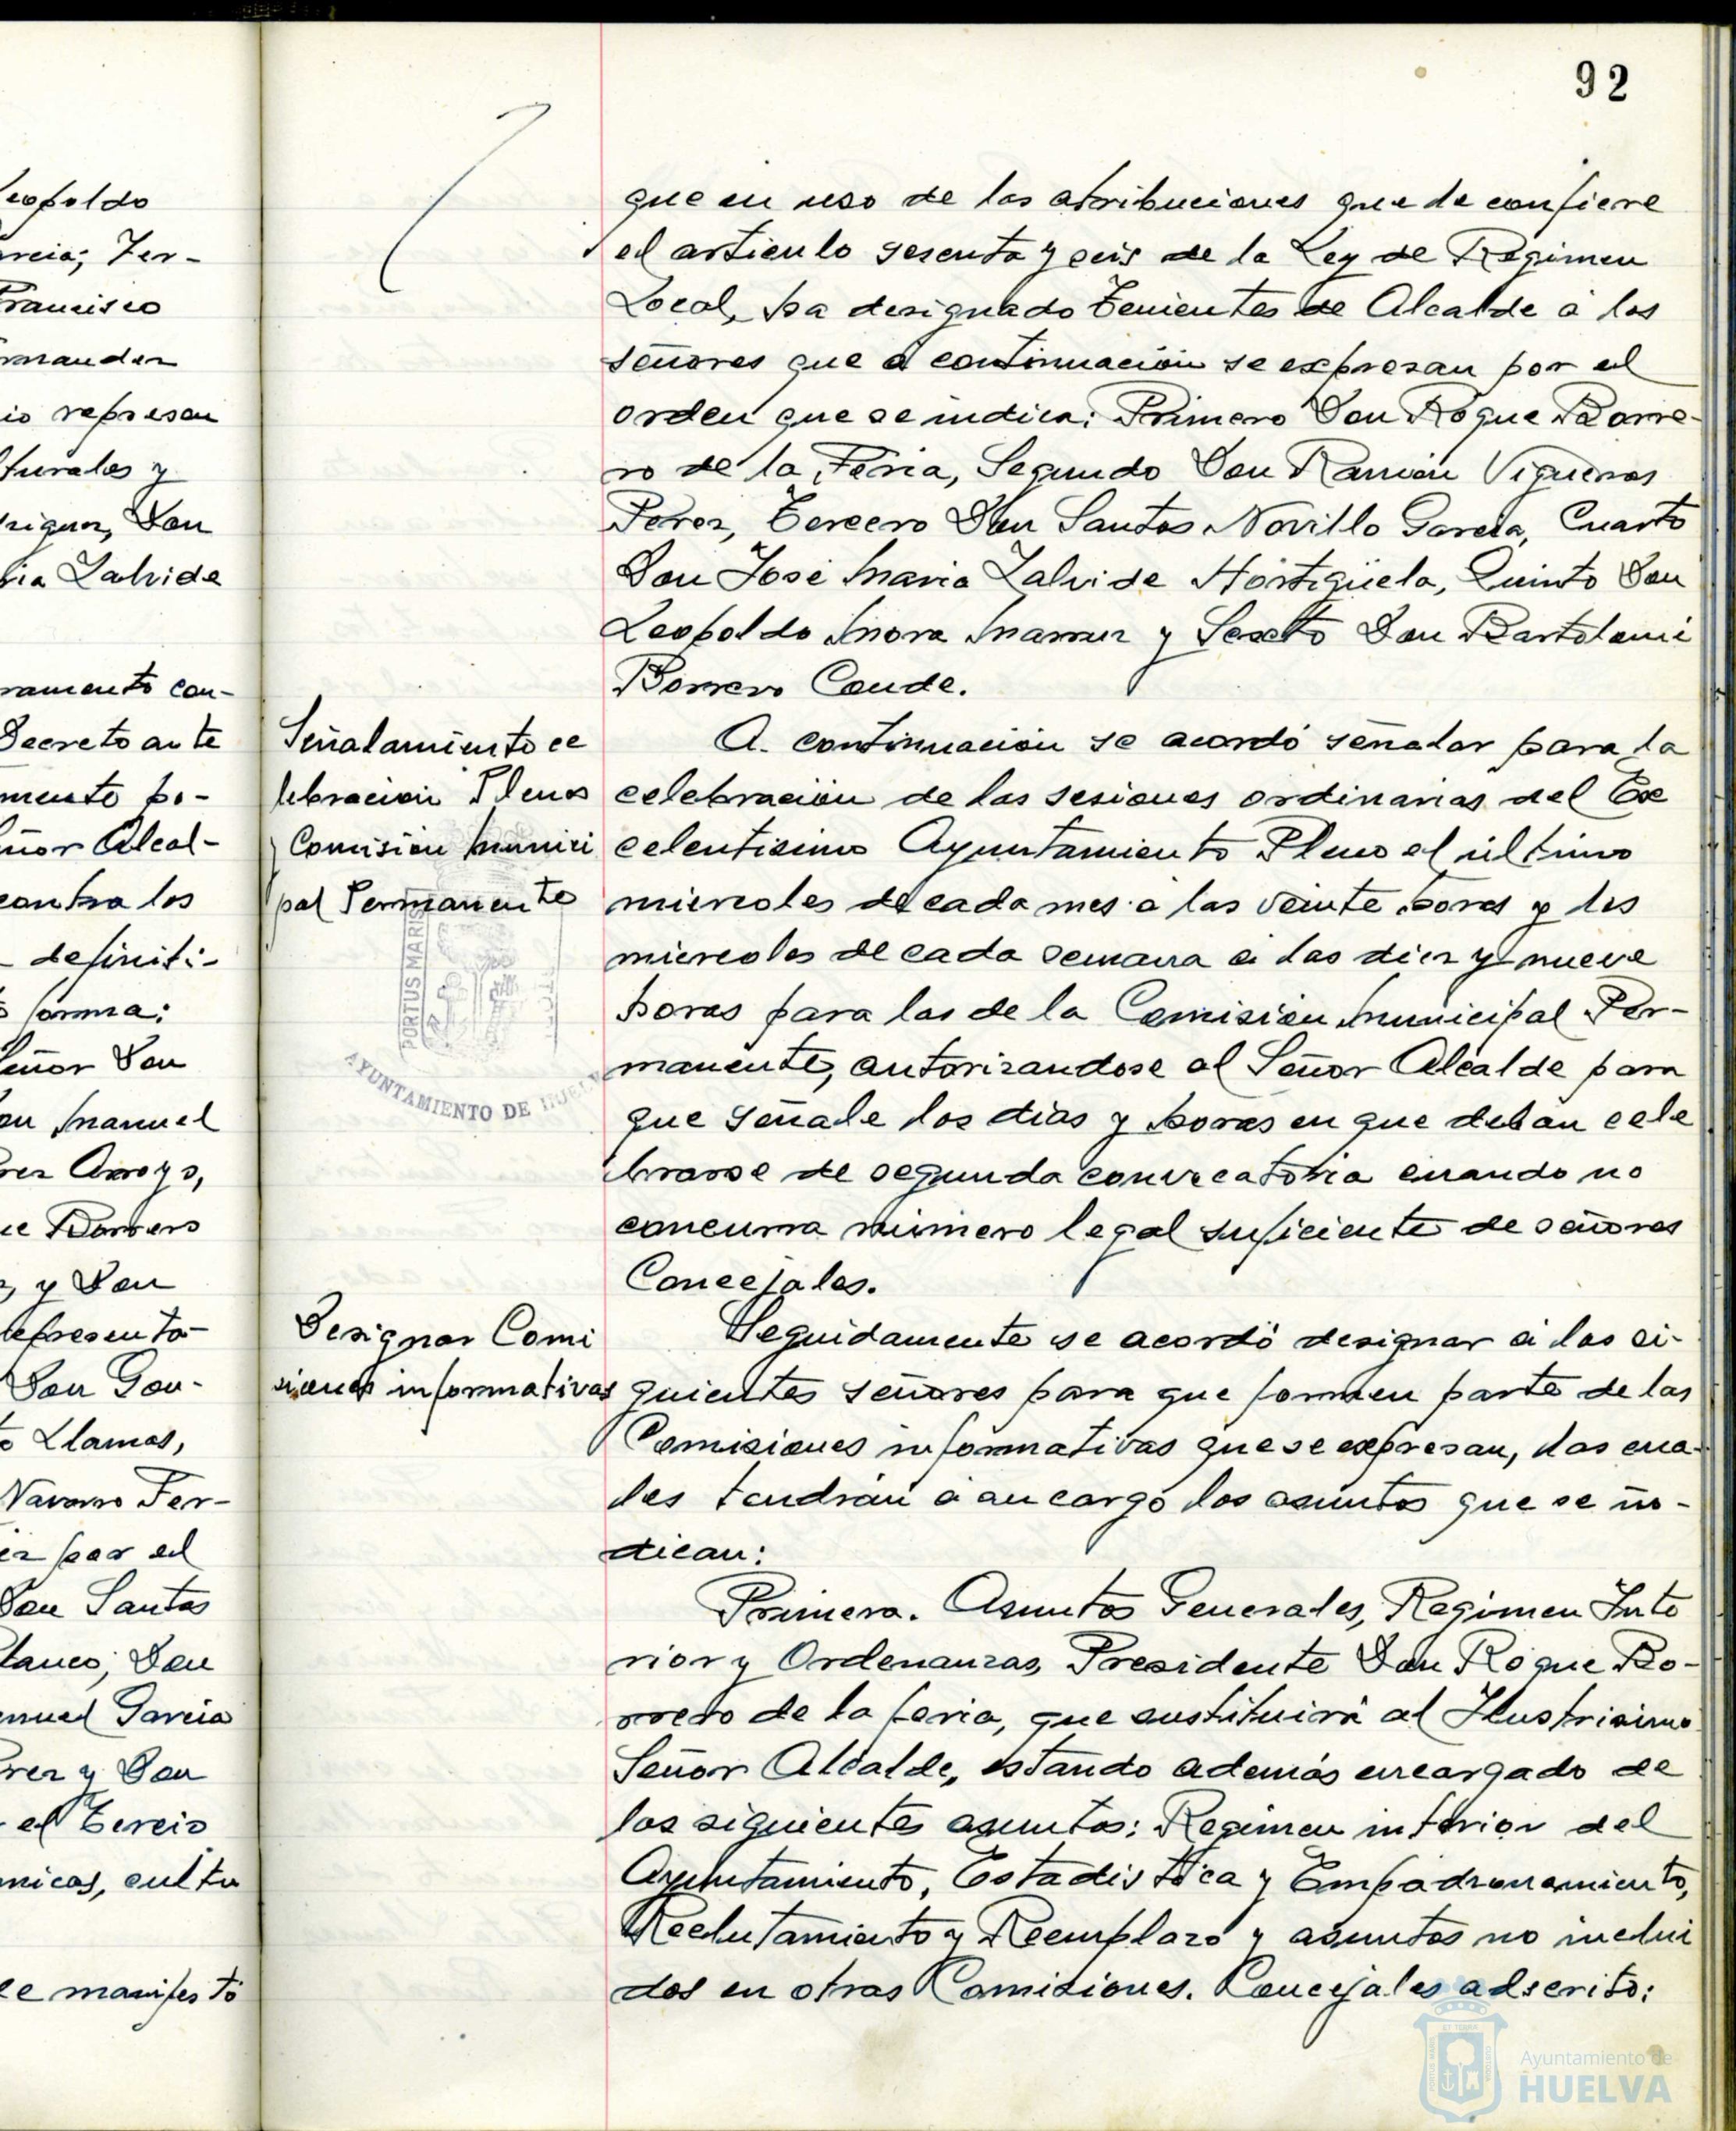 92
eopoldo
arcia; Fer-
Francisco
rnandez
io represen
lturales y
driguez, Don
ria Zalvide
ramento con-
Decreto ante
mento po-
eñor Alcal-
contra los
definiti-
forma:
eñor Don
on Manuel
rez Arroyo,
ue Borrero
z, y Don
representa-
Don Gon-
to Llamas,
Navarro Fer-
ez por el
Don Santos
lanco; Don
anuel Garcia
erez y Don
el Tercio
micas, cultu
se manifestó
que en uso de las atribuciones que le confiere
el articulo sesenta y seis de la Ley de Régimen
Local, ha designado Tenientes de Alcalde a los
señores que a continuación se expresan por el
orden que se indica: Primero Don Roque Borre-
ro de la Feria, Segundo Don Ramón Vigueras
Perez, Tercero Don Santos Novillo Garcia, Cuarto
Don José Maria Zalvide Hortigüela, Quinto Don
Leopoldo Mora Mamur y Sexto Don Bartolomé
Borrero Conde.
Señalamiento ce
lebración Plenos
Comisión Munici
pal Permanente
A continuación se acordó señalar para la
celebración de las sesiones ordinarias del Ex
celentisimo Ayuntamiento Pleno el último
miercoles de cada mes a las veinte horas y los
miercoles de cada semana a las diez y nueve
horas para las de la Comisión Municipal Per-
manente, autorizandose al Señor Alcalde para
que señale los dias y horas en que deban cele
brarse de segunda convocatoria cuando no
concurra número legal suficiente de señores
Concejales.
PORTUS MARIS
AYUNTAMIENTO DE HUELVA
Designar Comi
siones informativas
Seguidamente se acordó designar a los si-
guientes señores para que formen parte de las
Comisiones informativas que se expresan, las cua-
les tendrán a su cargo los asuntos que se in-
dican:
Primera. Asuntos Generales, Regimen Inte
rior y Ordenanzas, Presidente Don Roque Bo-
rrero de la feria, que sustituirá al Ilustrisimo
Señor Alcalde, estando además encargado de
los siguientes asuntos: Regimen interior del
Ayuntamiento, Estadistica y Empadronamiento,
Reclutamiento y Reemplazo y asuntos no inclui
dos en otras Comisiones. Concejales adscrito:
Ayuntamiento de
HUELVA